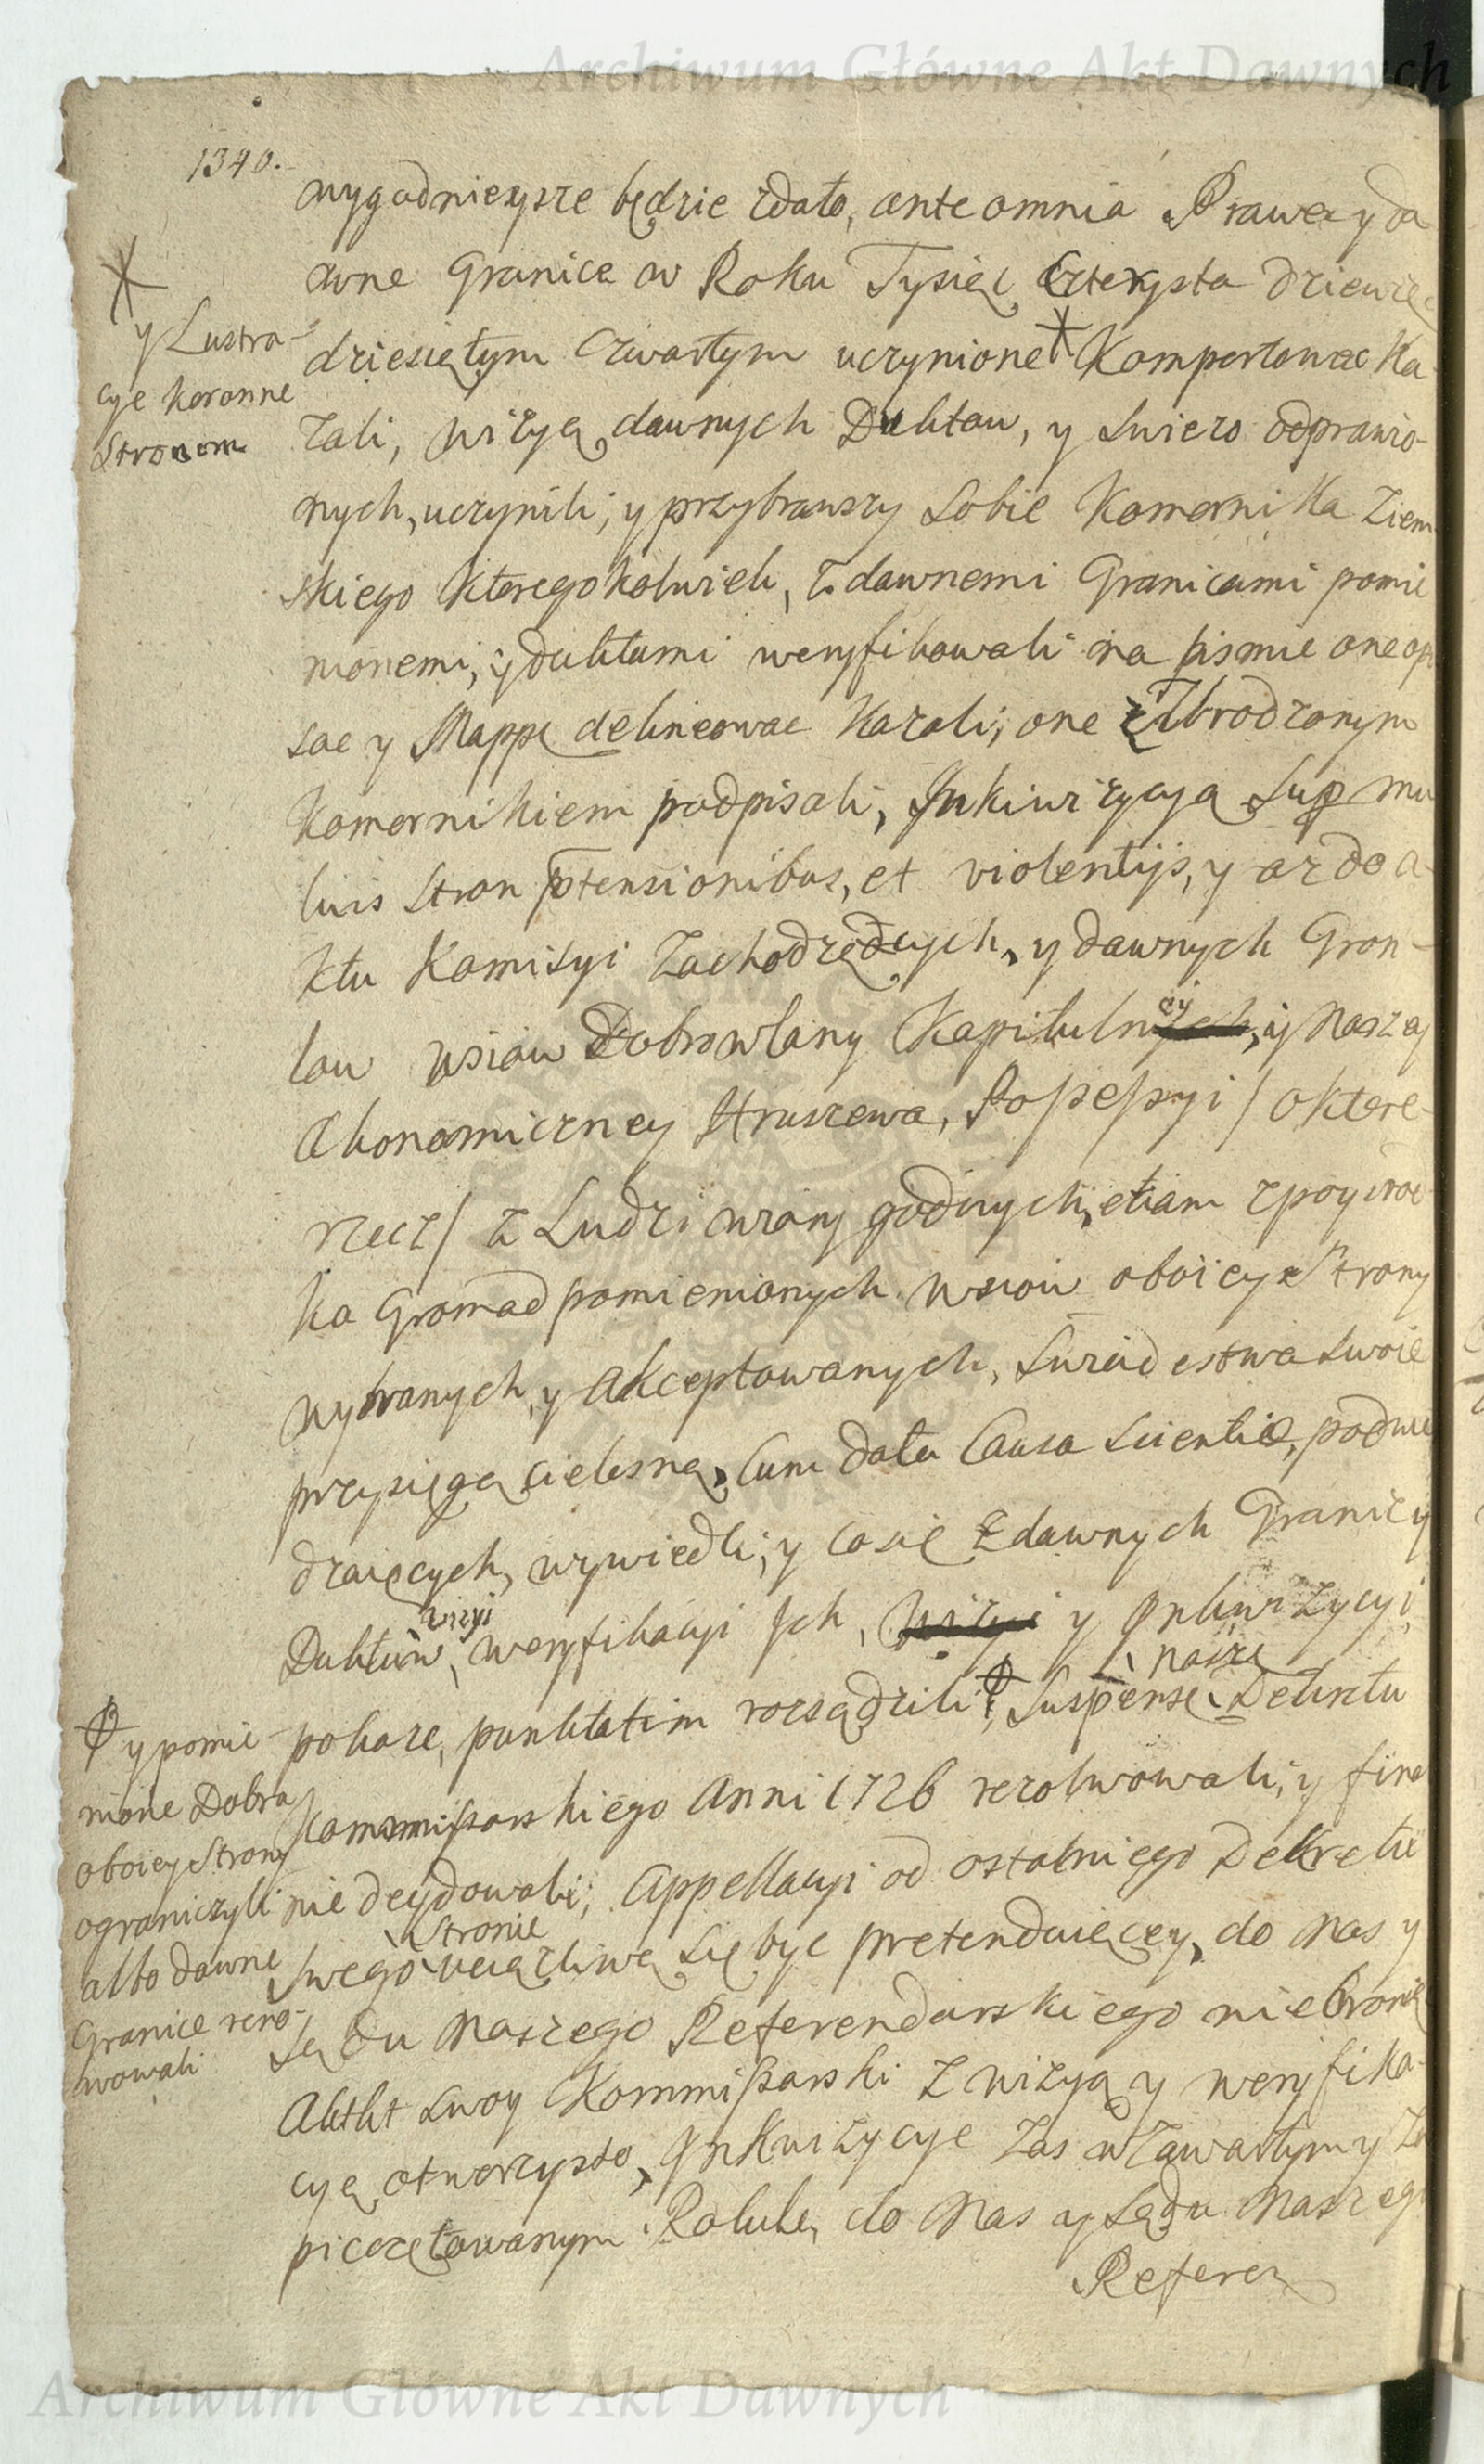 Archiwum Główne Akt Dawnych
1340.
wygodnieysze będzie zdało, ante omnia Prawa y da
wne Granice w Roku Tysiąc Czterysta dziewię
dziesiątym czwartym uczynione * Komportowac Ka-
zali, wizyą dawnych Duktow, y swiezo odprawio-
nych, uczynili, y przybrawszy sobie Komornika Ziem
skiego ktoregokolwiek, z dawnemi Granicami pomie
nionemi, y duktami weryfikowali na pismie one opi
sac y Mappę delineowac kazali, one z Urodzonym
Komornikiem podpisali, Inkwizycyą sup mu
tuis stron ptensionibus, et violentijs, y az do a-
ktu Komisyi zachodzących, y dawnych Gron-
tow wsiow Dobrowlany Kapitulney, y Naszey
Ekonomiczney Hruszewa, Possessyi / o ktore
rzecz / z Ludzi wiary godnych, etiam z posrod
ka Gromad pomienionych wsiow oboicy Strony
wybranych, y akceptowanych, swiadestwa swoie
przysięgą cielesną, cum data causa scientiæ, podwie
dzaiących, wywiedli, y co się z dawnych Granic y
Duktow, wizyi weryfikacyi Ich, wizyi y Inkwizycyi
pokaze, punktatim rozsądzili, Suspensę nasze Dekretu
Kommissarskiego Anni 1726 rezolwowali, y fina
nie decydowali, Appellacyi od ostatniego Dekretu
swego Stronie uciązliwą się byc pretenduiącey, do Nas y
Sądu Naszego Referendarskiego niebronią
Aktkt swoy Kommissarski z wizyą y weryfika-
cyą otworzysto, Inkwizycye zas w zawartym y za
pieczętowanym Rotule, do Nas y Sądu Naszego
Referen
*
y Lustra-
cye koronne
Stronom
y pomie
nione Dobra
oboiey Strony
ograniczyli
albo dawne
Granice reno-
wowali
Archiwum Główne Akt Dawnych